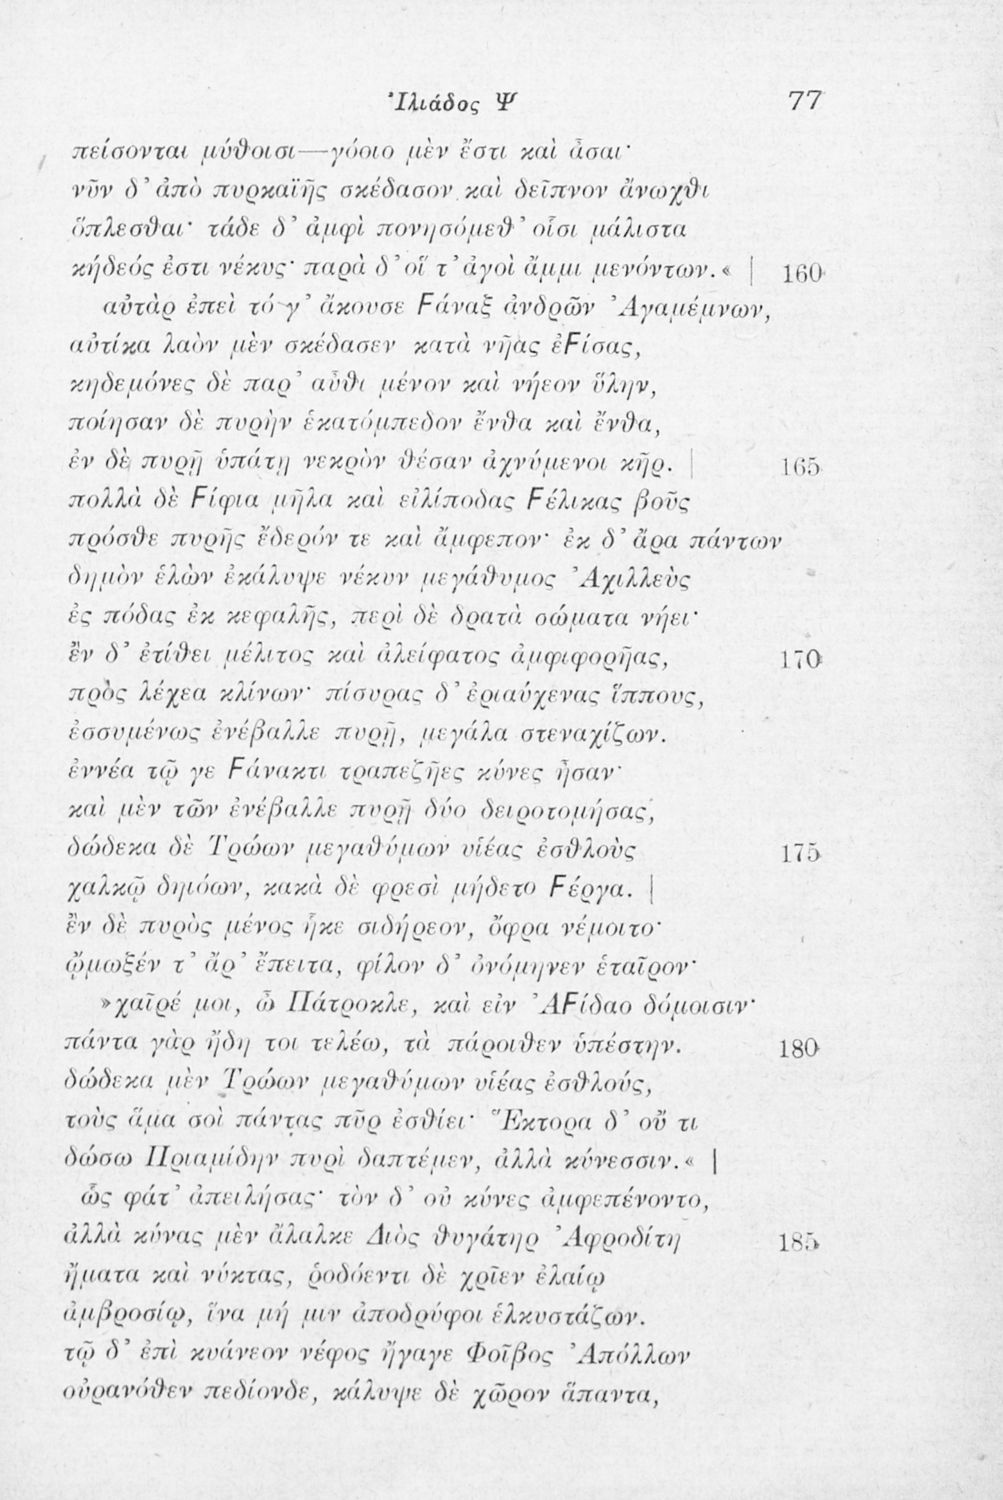 Ἰλιάδος Ψ 77
πείσονται μύθοισι—γόοιο μὲν ἔστι καὶ ἆσαι·
νῦν δ’ ἀπὸ πυρκαϊῆς σκέδασον καὶ δεῖπνον ἄνωχθι
ὅπλεσθαι· τάδε δ’ ἀμφὶ πονησόμεθ’ οἷσι μάλιστα
κήδεός ἐστι νέκυς· παρὰ δ’ οἵ τ’ ἀγοὶ ἄμμι μενόντων.« | 160
αὐτὰρ ἐπεὶ τό γ’ ἄκουσε Ϝάναξ ἀνδρῶν Ἀγαμέμνων,
αὐτίκα λαὸν μὲν σκέδασεν κατὰ νῆας ἐϜίσας,
κηδεμόνες δὲ παρ’ αὖθι μένον καὶ νήεον ὕλην,
ποίησαν δὲ πυρὴν ἑκατόμπεδον ἔνθα καὶ ἔνθα,
ἐν δὲ πυρῇ ὑπάτῃ νεκρὸν θέσαν ἀχνύμενοι κῆρ. | 165
πολλὰ δὲ Ϝίφια μῆλα καὶ εἰλίποδας Ϝέλικας βοῦς
πρόσθε πυρῆς ἔδερόν τε καὶ ἄμφεπον· ἐκ δ’ ἄρα πάντων
δημὸν ἑλὼν ἐκάλυψε νέκυν μεγάθυμος Ἀχιλλεὺς
ἐς πόδας ἐκ κεφαλῆς, περὶ δὲ δρατὰ σώματα νήει·
ἒν δ’ ἐτίθει μέλιτος καὶ ἀλείφατος ἀμφιφορῆας, 170
πρὸς λέχεα κλίνων· πίσυρας δ’ ἐριαύχενας ἵππους,
ἐσσυμένως ἐνέβαλλε πυρῇ, μεγάλα στεναχίζων.
ἐννέα τῷ γε Ϝάνακτι τραπεζῆες κύνες ἦσαν·
καὶ μὲν τῶν ἐνέβαλλε πυρῇ δύο δειροτομήσας,
δώδεκα δὲ Τρώων μεγαθύμων υἱέας ἐσθλοὺς 175
χαλκῷ δηιόων, κακὰ δὲ φρεσὶ μήδετο Ϝέργα. |
ἒν δὲ πυρὸς μένος ἧκε σιδήρεον, ὄφρα νέμοιτο·
ᾤμωξέν τ’ ἄρ’ ἔπειτα, φίλον δ’ ὀνόμηνεν ἑταῖρον·
»χαῖρέ μοι, ὦ Πάτροκλε, καὶ εἰν ἈϜίδαο δόμοισιν·
πάντα γὰρ ἤδη τοι τελέω, τὰ πάροιθεν ὑπέστην. 180
δώδεκα μὲν Τρώων μεγαθύμων υἱέας ἐσθλούς,
τοὺς ἅμα σοὶ πάντας πῦρ ἐσθίει· Ἕκτορα δ’ οὔ τι
δώσω Πριαμίδην πυρὶ δαπτέμεν, ἀλλὰ κύνεσσιν.« |
ὣς φάτ’ ἀπειλήσας· τὸν δ’ οὐ κύνες ἀμφεπένοντο,
ἀλλὰ κύνας μὲν ἄλαλκε Διὸς θυγάτηρ Ἀφροδίτη 185
ἤματα καὶ νύκτας, ῥοδόεντι δὲ χρῖεν ἐλαίῳ
ἀμβροσίῳ, ἵνα μή μιν ἀποδρύφοι ἑλκυστάζων.
τῷ δ’ ἐπὶ κυάνεον νέφος ἤγαγε Φοῖβος Ἀπόλλων
οὐρανόθεν πεδίονδε, κάλυψε δὲ χῶρον ἅπαντα,